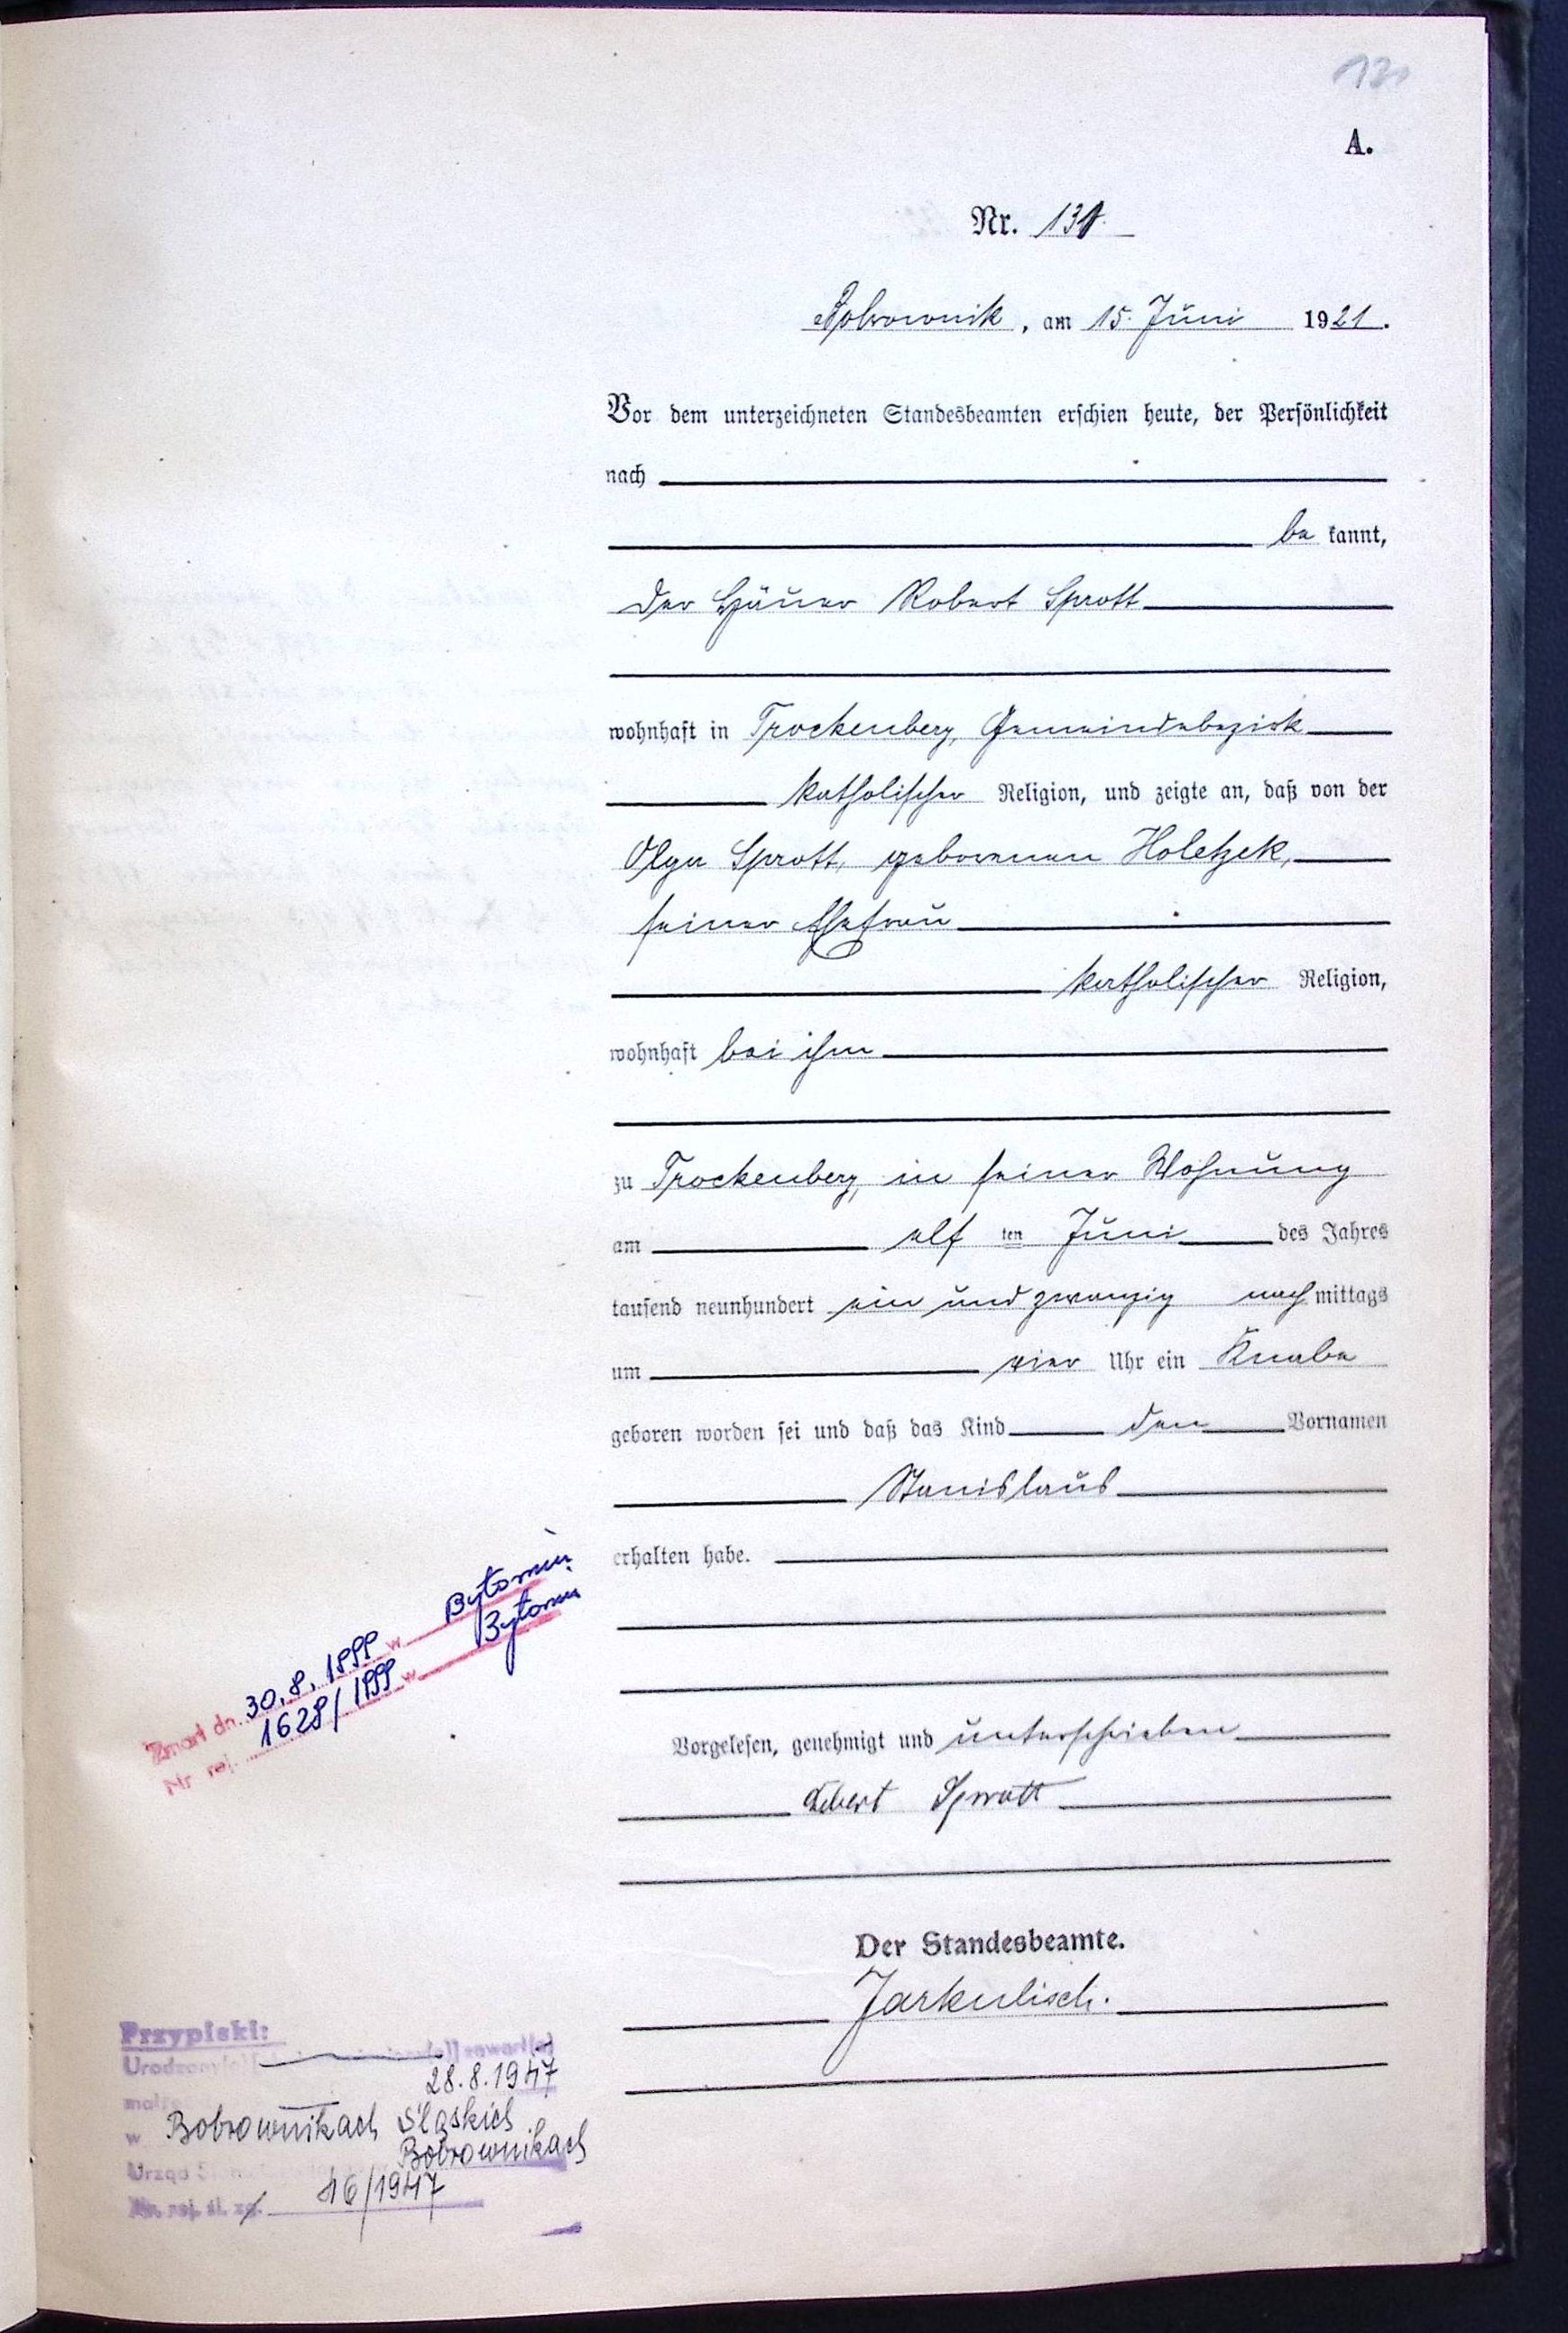 A.
Nr. 131.
Bobrownik, am 15. Juni 1921.
Vor dem unterzeichneten Standesbeamten erschien heute, der Persönlichkeit
nach
be kannt,
der Häuer Robert Sprott
wohnhaft in Trockenberg, Gemeindebezirk
katholischer Religion, und zeigte an, daß von der
Olga Sprott, geborenen Holetzek,
seiner Ehefrau
katholischer Religion,
wohnhaft bei ihm
zu Trockenberg, in seiner Wohnung
am elf ten Juni des Jahres
tausend neunhundert ein und zwanzig nachmittags
um vier Uhr ein Knabe
geboren worden sei und daß das Kind den Vornamen
Stanislaus
erhalten habe.
Zmarł dn. 30.8.1999 w Bytomiu
Nr rej. 1628/1999 w Bytomiu
Vorgelesen, genehmigt und unterschrieben
Robert Sprott
Der Standesbeamte.
Jarkulisch.
Przypiski:
zawarł(a)
28.8.1947
w Bobrownikach Śląskich
Urząd Bobrownikach
Nr. rej. śl. 16/1947